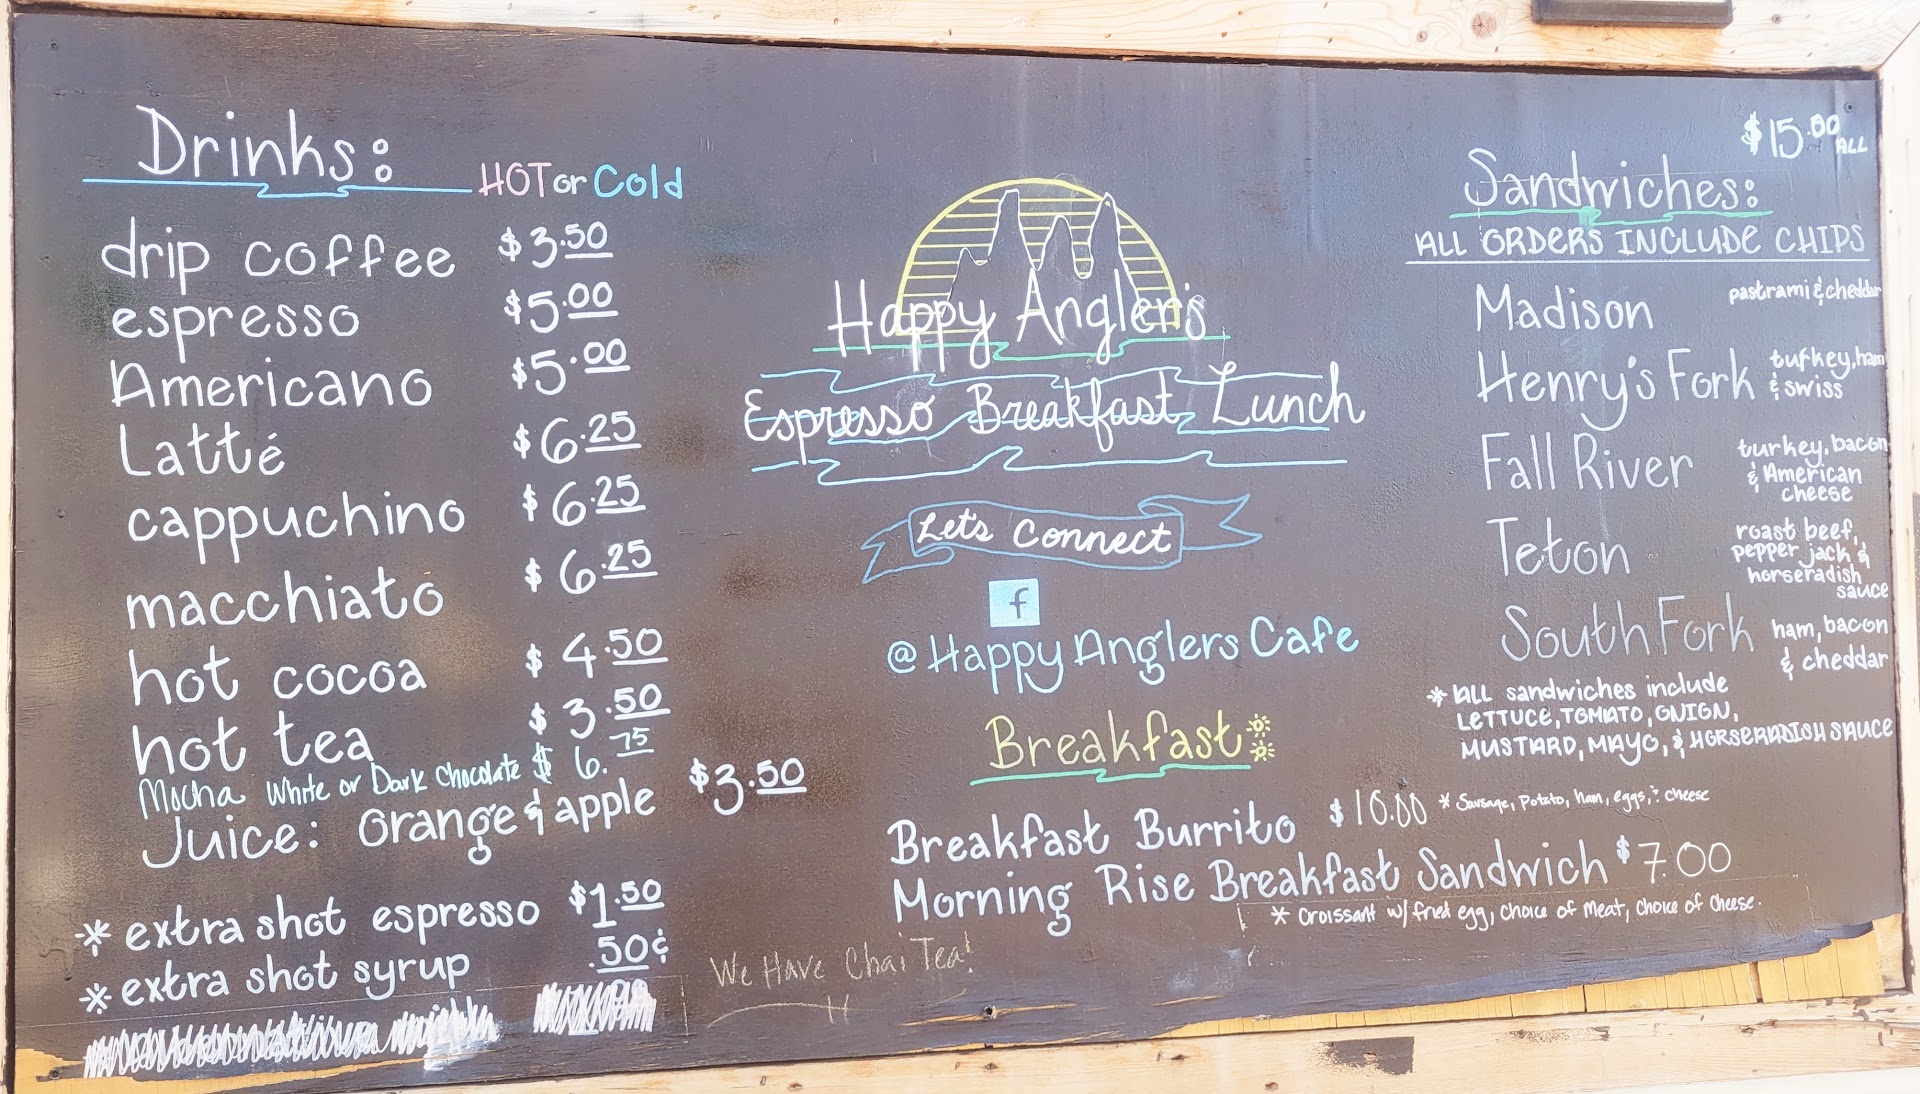 Drinks: HOT or Cold
drip coffee $3.50
espresso $5.00
Americano $5.00
Latté $6.25
cappuchino $6.25
macchiato $6.25
hot cocoa $4.50
hot tea $3.50
Mocha White or Dark Chocolate $6.75
Juice: orange & apple $3.50
* extra shot espresso $1.50
* extra shot syrup .50¢
We Have Chai Tea!
Happy Angler's
Espresso Breakfast Lunch
Let's Connect
f
@HappyAnglersCafe
Breakfast
Breakfast Burrito $10.00 * Sausage, Potato, ham, eggs, & cheese
Morning Rise Breakfast Sandwich $7.00
* Croissant w/ fried egg, choice of meat, choice of cheese.
$15.00 ALL
Sandwiches:
ALL ORDERS INCLUDE CHIPS
Madison pastrami & cheddar
Henry's Fork turkey, ham
& swiss
Fall River turkey, bacon
& American
cheese
Teton roast beef,
pepper jack &
horseradish
sauce
South Fork ham, bacon
& cheddar
* ALL sandwiches include
LETTUCE, TOMATO, ONION,
MUSTARD, MAYO, & HORSERADISH SAUCE